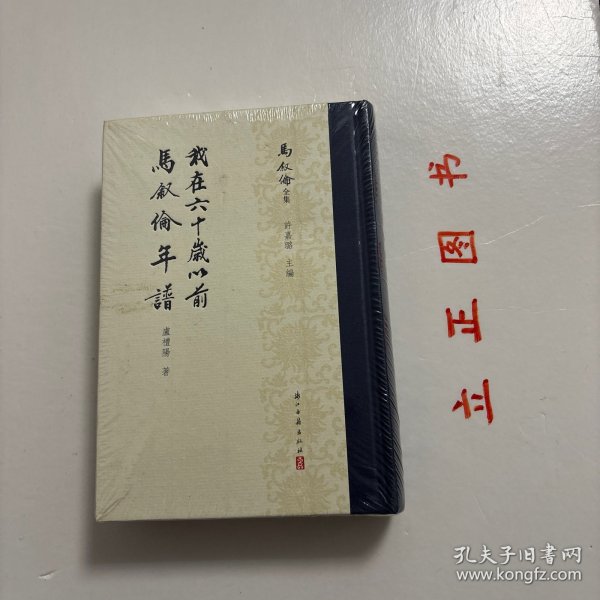 馬叙倫全集
許嘉璐 主編
我在六十歲以前
馬叙倫年譜
盧禮陽 著
浙江古籍出版社
立正图书
孔夫子旧书网
www.kongfz.com